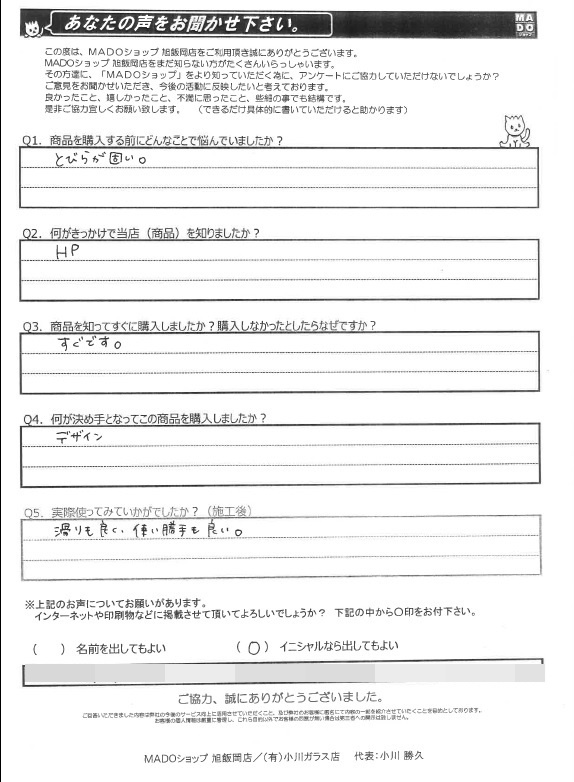 あなたの声をお聞かせ下さい。
MADO
ショップ
この度は、MADOショップ 旭飯岡店をご利用頂き誠にありがとうございます。
MADOショップ 旭飯岡店をまだ知らない方がたくさんいらっしゃいます。
その方達に、「MADOショップ」をより知っていただく為に、アンケートにご協力していただけないでしょうか？
ご意見をお聞かせいただき、今後の活動に反映したいと考えております。
良かったこと、嬉しかったこと、不満に思ったこと、些細の事でも結構です。
是非ご協力宜しくお願い致します。 （できるだけ具体的に書いていただけると助かります）
Q1．商品を購入する前にどんなことで悩んでいましたか？
とびらが固い。
Q2．何がきっかけで当店（商品）を知りましたか？
HP
Q3．商品を知ってすぐに購入しましたか？購入しなかったとしたらなぜですか？
すぐです。
Q4．何が決め手となってこの商品を購入しましたか？
デザイン
Q5．実際使ってみていかがでしたか？（施工後）
滑りも良く、使い勝手も良い。
※上記のお声についてお願いがあります。
インターネットや印刷物などに掲載させて頂いてよろしいでしょうか？ 下記の中から○印をお付下さい。
（ ）名前を出してもよい （○）イニシャルなら出してもよい
ご協力、誠にありがとうございました。
MADOショップ 旭飯岡店／（有）小川ガラス店 代表：小川 勝久